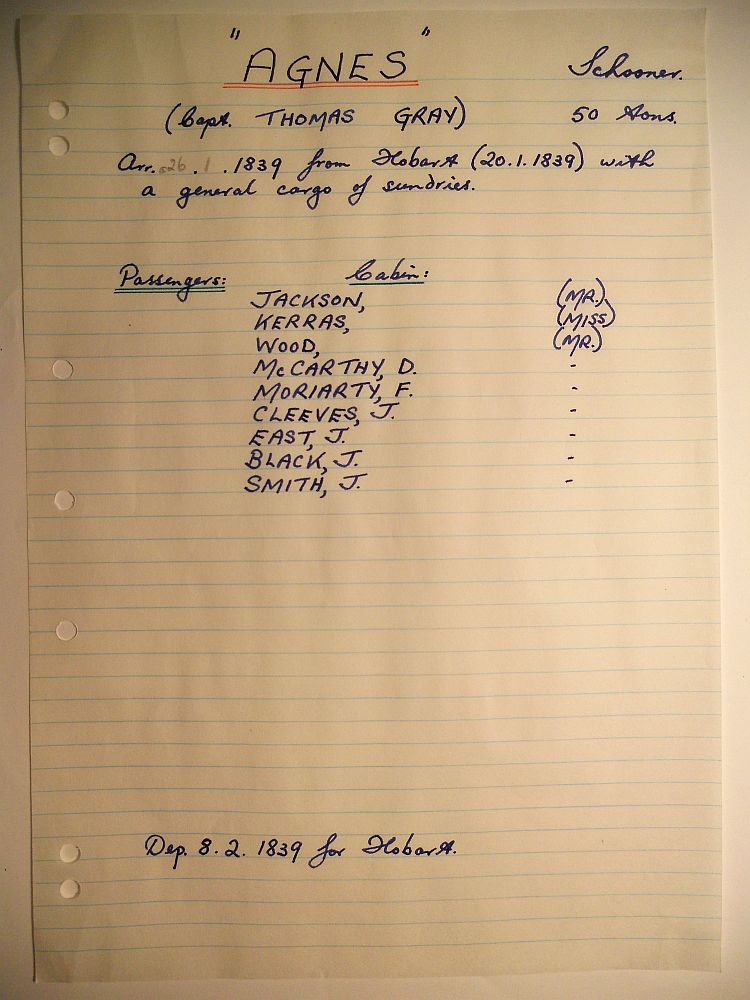 "AGNES" Schooner.
(Capt. THOMAS GRAY) 50 tons.
Arr. 26.1.1839 from Hobart (20.1.1839) with
a general cargo of sundries.
Passengers: Cabin:
JACKSON, (MR.)
KERRAS, (MISS)
WOOD, (MR.)
McCARTHY, D. -
MORIARTY, F. -
CLEEVES, J. -
EAST, J. -
BLACK, J. -
SMITH, J. -
Dep. 8.2.1839 for Hobart.